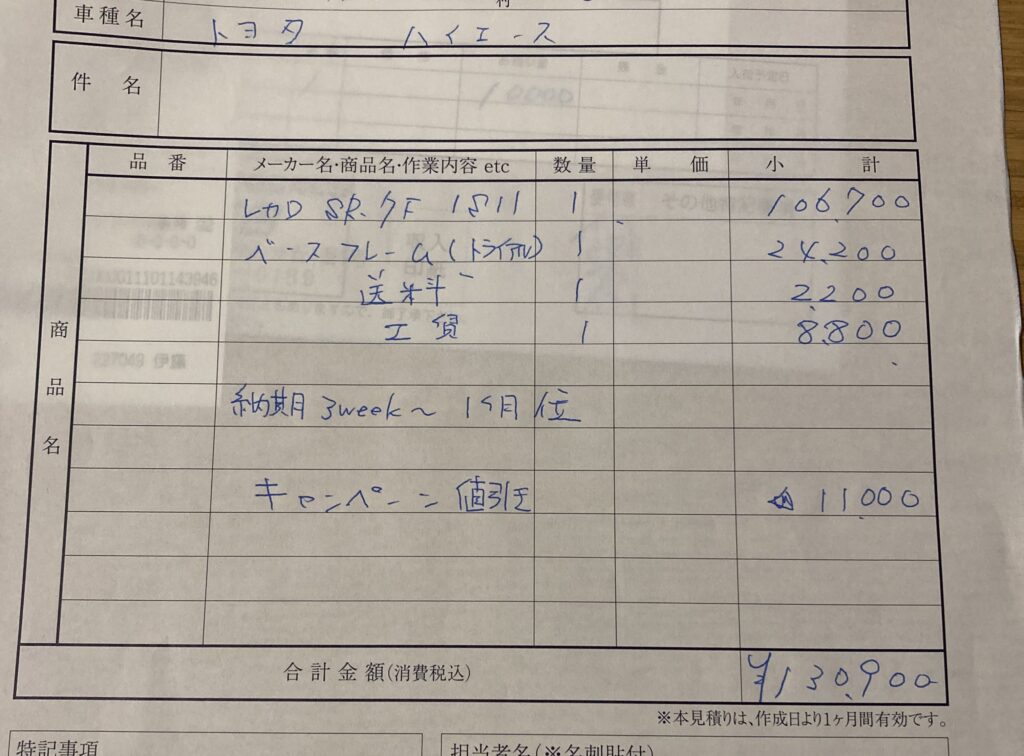 車種名 トヨタ ハイエース
件名
品番 メーカー名・商品名・作業内容 etc 数量 単価 小計
商品名
レカロ SR-7F 1 106,700
ベースフレーム(トライアル) 1 24,200
送料 1 2,200
工賃 1 8,800
納期 3week〜1ヶ月位
キャンペーン 値引き 11,000
合計金額(消費税込) ¥130,900
※本見積りは、作成日より1ヶ月間有効です。
特記事項 担当者名(※名刺貼付)